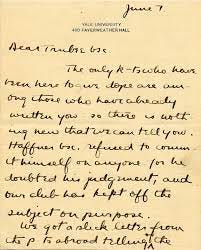 June 7
YALE UNIVERSITY
460 FAYERWEATHER HALL
Dear Trubee &c.
The only k-ts who have
been here to give dope are am-
ong those who have already
written you so there is noth-
ing new that we can tell you.
Haffner &c. refused to comm
it himself on anyone for he
doubted his judgment, and
our club has kept off the
subject on purpose.
We got a slick letter from
the P. ts abroad telling the